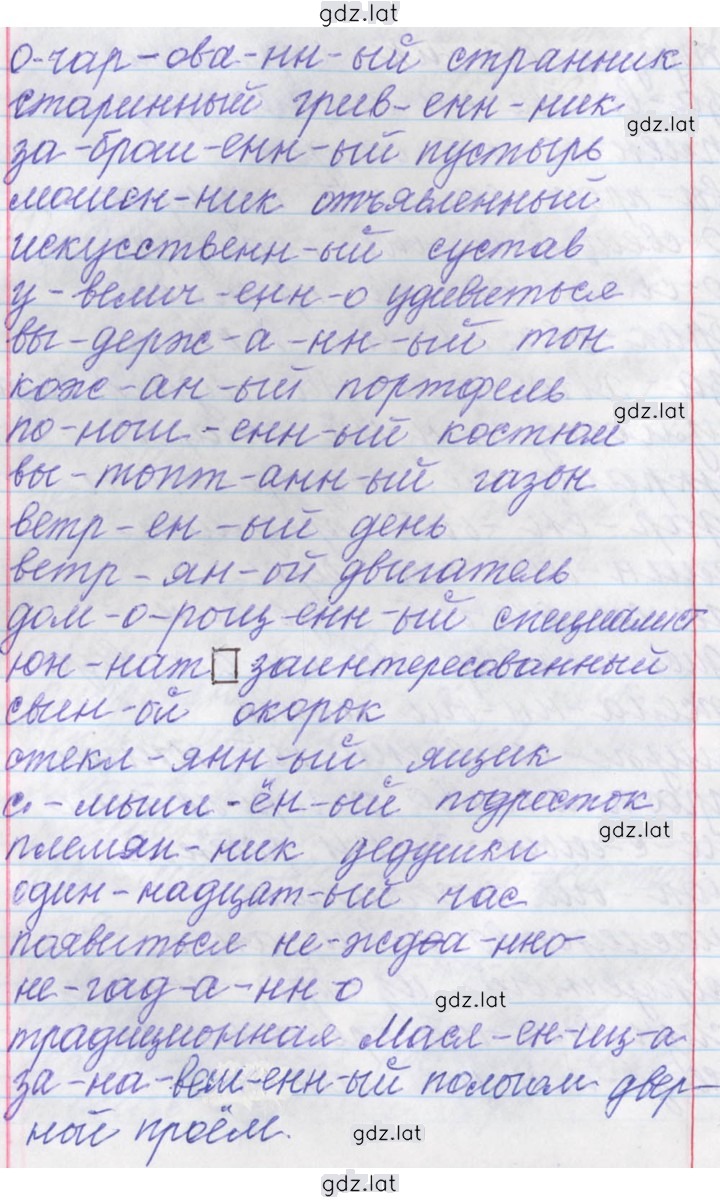 gdz.lat
о-чар-ова-нн-ый странник
старинный грив-енн-ник
gdz.lat
за-брош-енн-ый пустырь
мошен-ник отъявленный
искусственн-ый сустав
у-велич-енн-о удивиться
вы-держ-а-нн-ый тон
кож-ан-ый портфель
gdz.lat
по-нош-енн-ый костюм
вы-топт-анн-ый газон
ветр-ен-ый день
ветр-ян-ой двигатель
дом-о-рощ-енн-ый специалист
юн-нат заинтересованный
свин-ой окорок
стекл-янн-ый ящик
с-мышл-ён-ый подросток
gdz.lat
племян-ник дедушки
один-надцат-ый час
появиться не-жда-нно
не-гад-а-нн-о
gdz.lat
традиционная Масл-ен-иц-а
за-на-веш-енн-ый пологом двер-
ной проём.
gdz.lat
gdz.lat